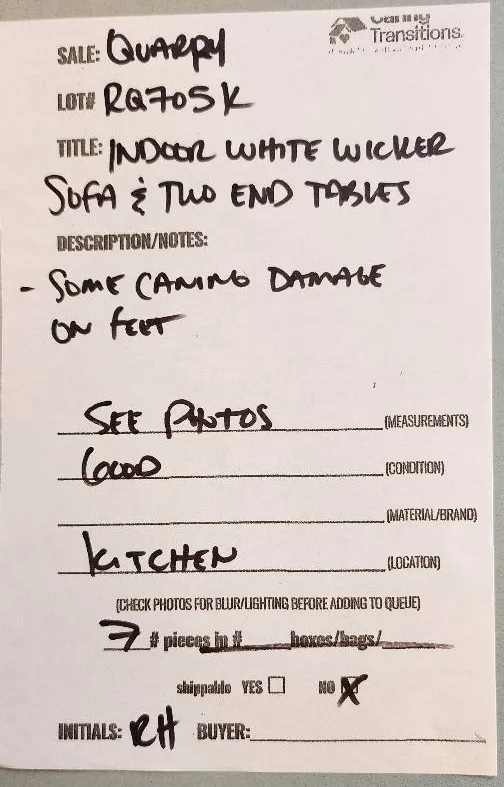 Transitions
SALE: QUARRY
LOT# RQ705K
TITLE: INDOOR WHITE WICKER
SOFA & TWO END TABLES
DESCRIPTION/NOTES:
- SOME CANING DAMAGE
ON FEET
SEE PHOTOS (MEASUREMENTS)
GOOD (CONDITION)
(MATERIAL/BRAND)
KITCHEN (LOCATION)
(CHECK PHOTOS FOR BLUR/LIGHTING BEFORE ADDING TO QUEUE)
7 # pieces in # boxes/bags/
shippable YES ☐ NO X
INITIALS: RH BUYER: